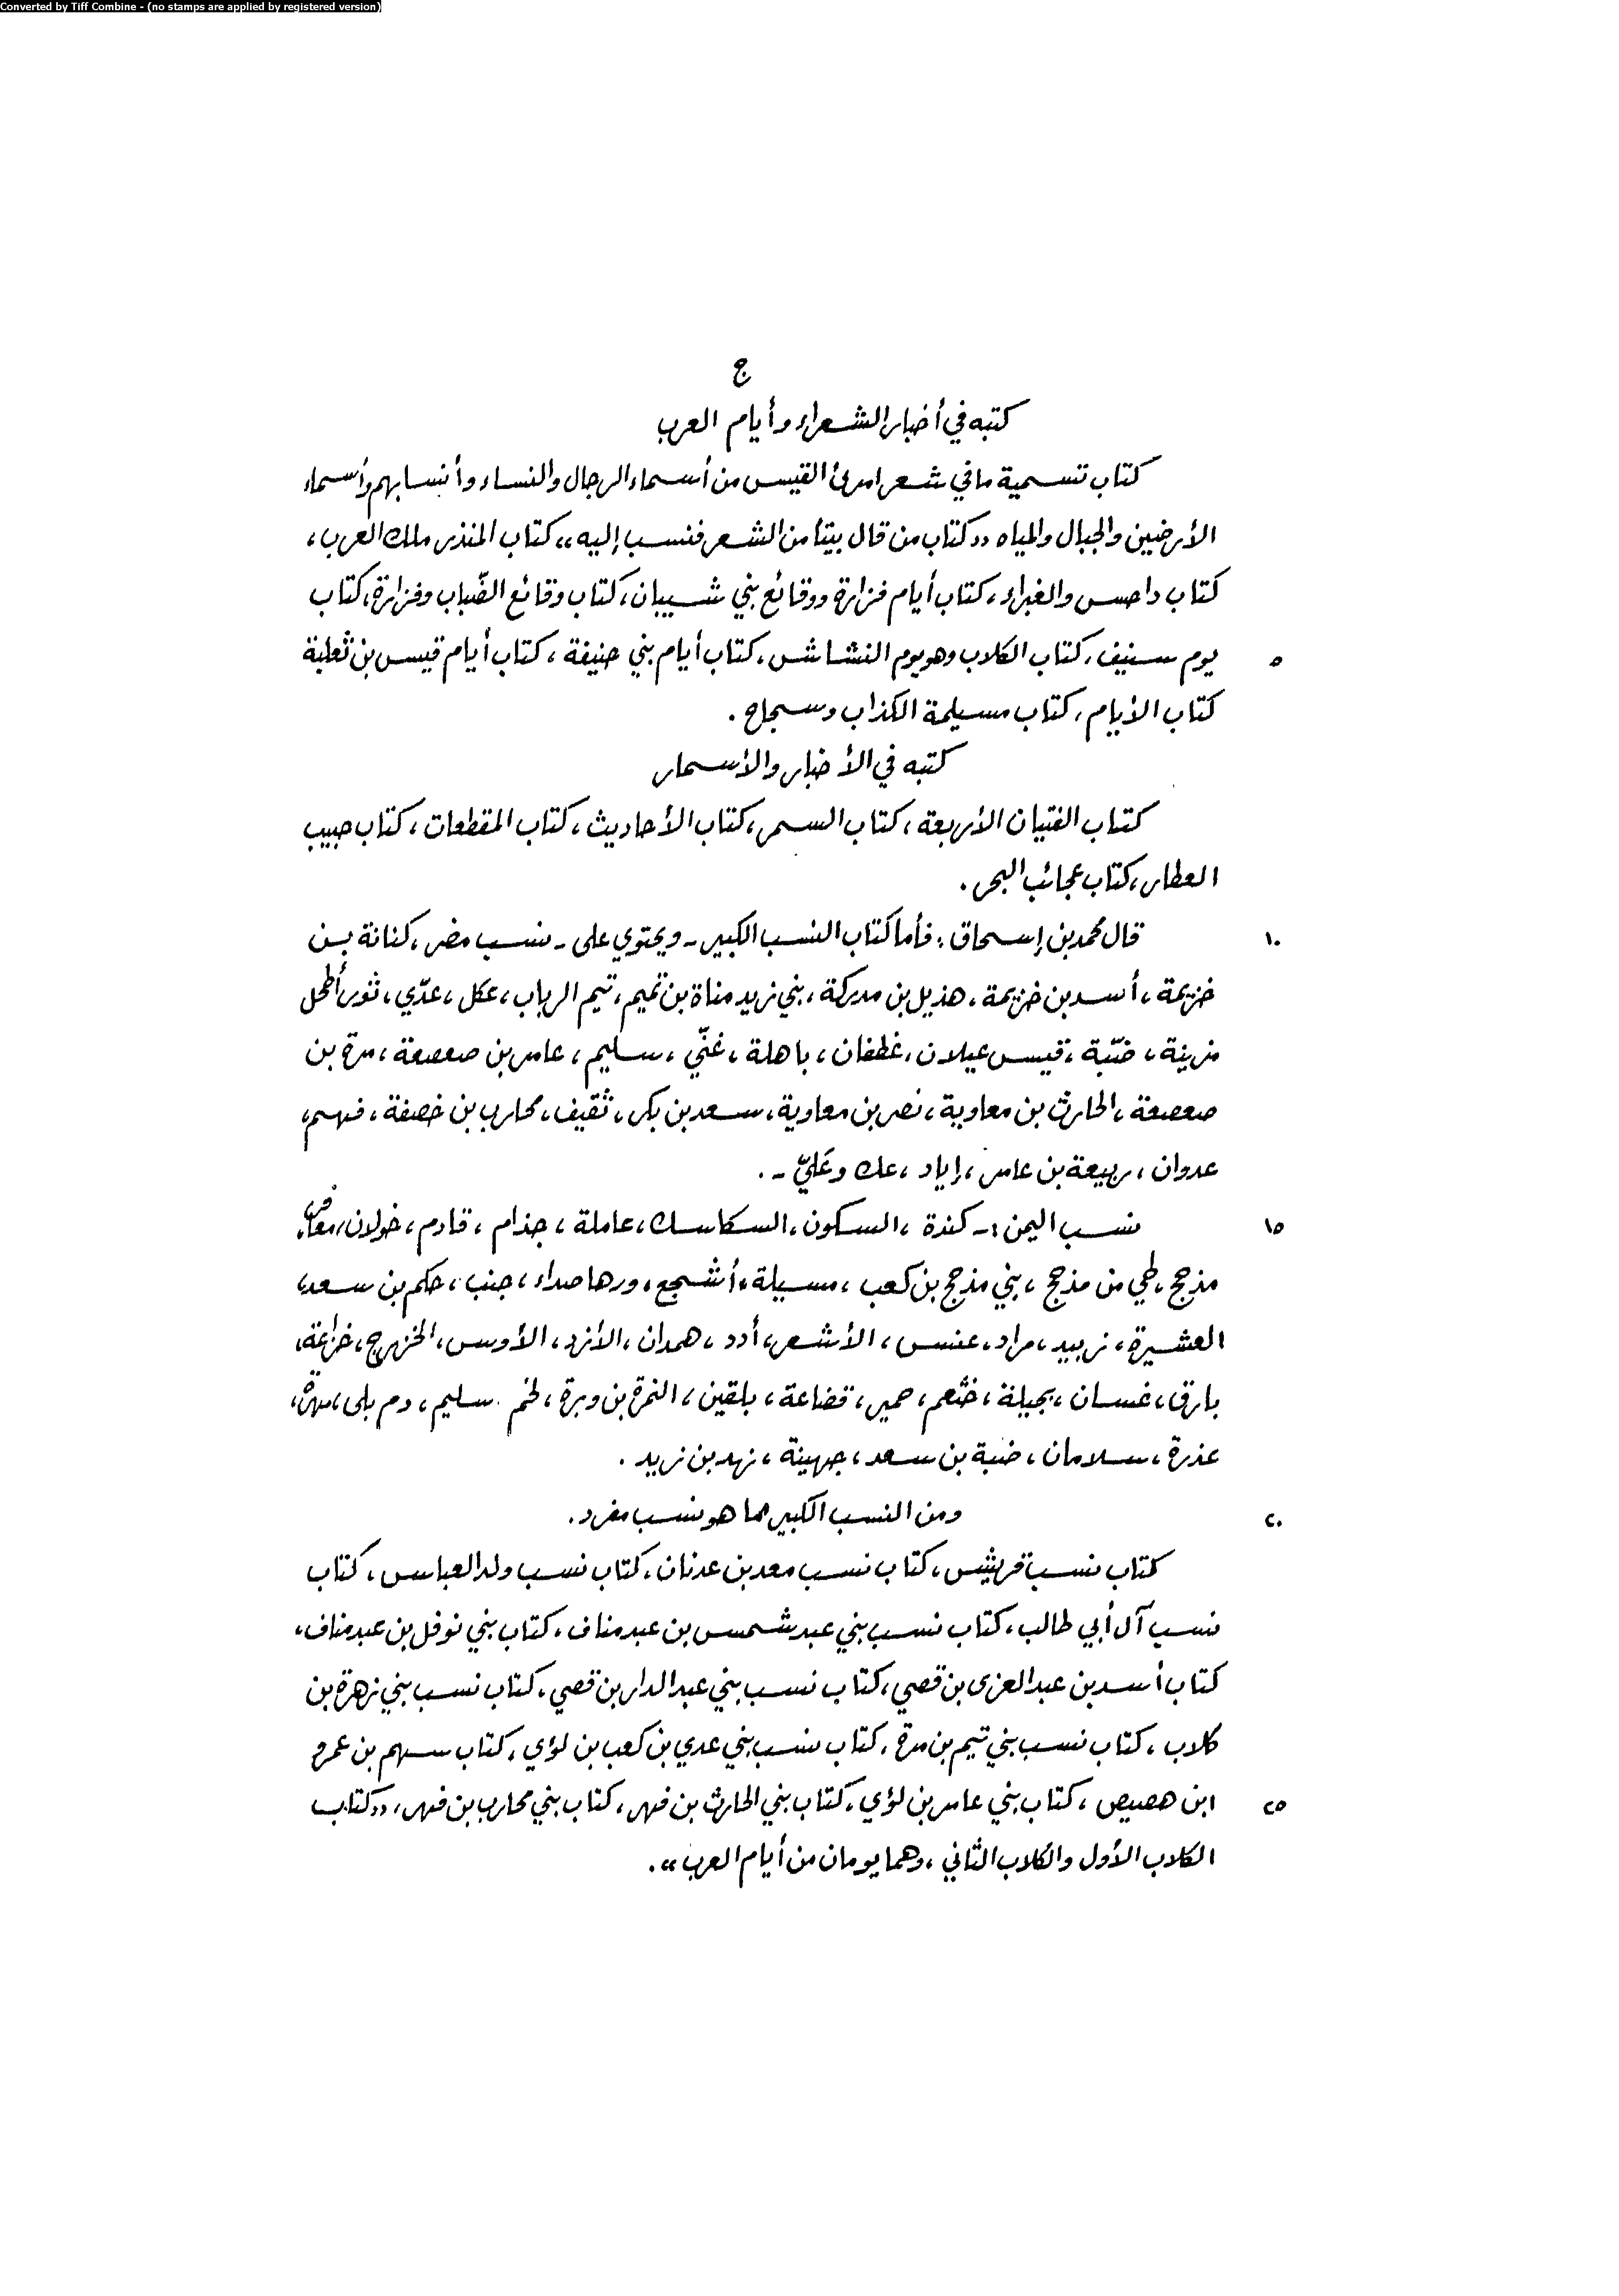 Converted by Tiff Combine - (no stamps are applied by registered version)
ج
كتبه في أخبار الشعراء وأيام العرب
كتاب تسمية ما في شعر امرئ القيس من أسماء الرجال والنساء وأنسابهم وأسماء
الأرضين والجبال والمياه ،،كتاب من قال بيتاً من الشعر فنسب إليه،، كتاب المنذر ملك العرب،
كتاب داحس والغبراء، كتاب أيام فزارة ووقائع بني شيبان، كتاب وقائع الضّباب وفزارة، كتاب
٥ يوم سنيف، كتاب الكلاب وهو يوم النشاش، كتاب أيام بني حنيفة، كتاب أيام قيس بن ثعلبة
كتاب الأيام، كتاب مسيلمة الكذاب وسجاح.
كتبه في الأخبار والأسمار
كتاب الفتيان الأربعة، كتاب السمر، كتاب الأحاديث، كتاب المقطعات، كتاب حبيب
العطار، كتاب عجائب البحر.
١٠ قال محمد بن إسحاق: فأما كتاب النسب الكبير - ويحتوي على - نسب مضر، كنانة بن
خزيمة، أسد بن خزيمة، هذيل بن مدركة، بني زيد مناة بن تميم، تيم الرباب، عكل، عدّي، ثور أطحل
مزينة، ضبّة، قيس عيلان، غطفان، باهلة، غنّي، سليم، عامر بن صعصعة، مرة بن
صعصعة، الحارث بن معاوية، نصر بن معاوية، سعد بن بكر، ثقيف، محارب بن خصفة، فهم،
عدوان، ربيعة بن عامر، إياد، عك وعَليّ -.
١٥ نسب اليمن :- كندة، السكون، السكاسك، عاملة، جذام، قادم، خولان، معافر،
مذحج، طي من مذحج، بني مذحج بن كعب، مسيلة، أشجع، ورها صداء، جنب، حكم بن سعد،
العشيرة، زبيد، مراد، عنس، الأشعر، أدد، همدان، الأزد، الأوس، الخزرج، خزاعة،
بارق، غسان، بجيلة، خثعم، حمير، قضاعة، بلقين، النمرة بن وبرة، لخم سليم، دم بلى، مهرة،
عذرة، سلامان، ضبة بن سعد، جهينة، نهد بن زيد.
٢٠ ومن النسب الكبير مما هو نسب مفرد.
كتاب نسب قريش، كتاب نسب معد بن عدنان، كتاب نسب ولد العباس، كتاب
نسب آل أبي طالب، كتاب نسب بني عبد شمس بن عبد مناف، كتاب بني نوفل بن عبد مناف،
كتاب أسد بن عبد العزى بن قصي، كتاب نسب بني عبد الدار بن قصي، كتاب نسب بني زهرة بن
كلاب، كتاب نسب بني تيم بن مرة، كتاب نسب بني عدي بن كعب بن لؤي، كتاب سهم بن عمرو
٢٥ ابن هصيص، كتاب بني عامر بن لؤي، كتاب بني الحارث بن فهر، كتاب بني محارب بن فهر، ،،كتاب
الكلاب الأول والكلاب الثاني، وهما يومان من أيام العرب،،.